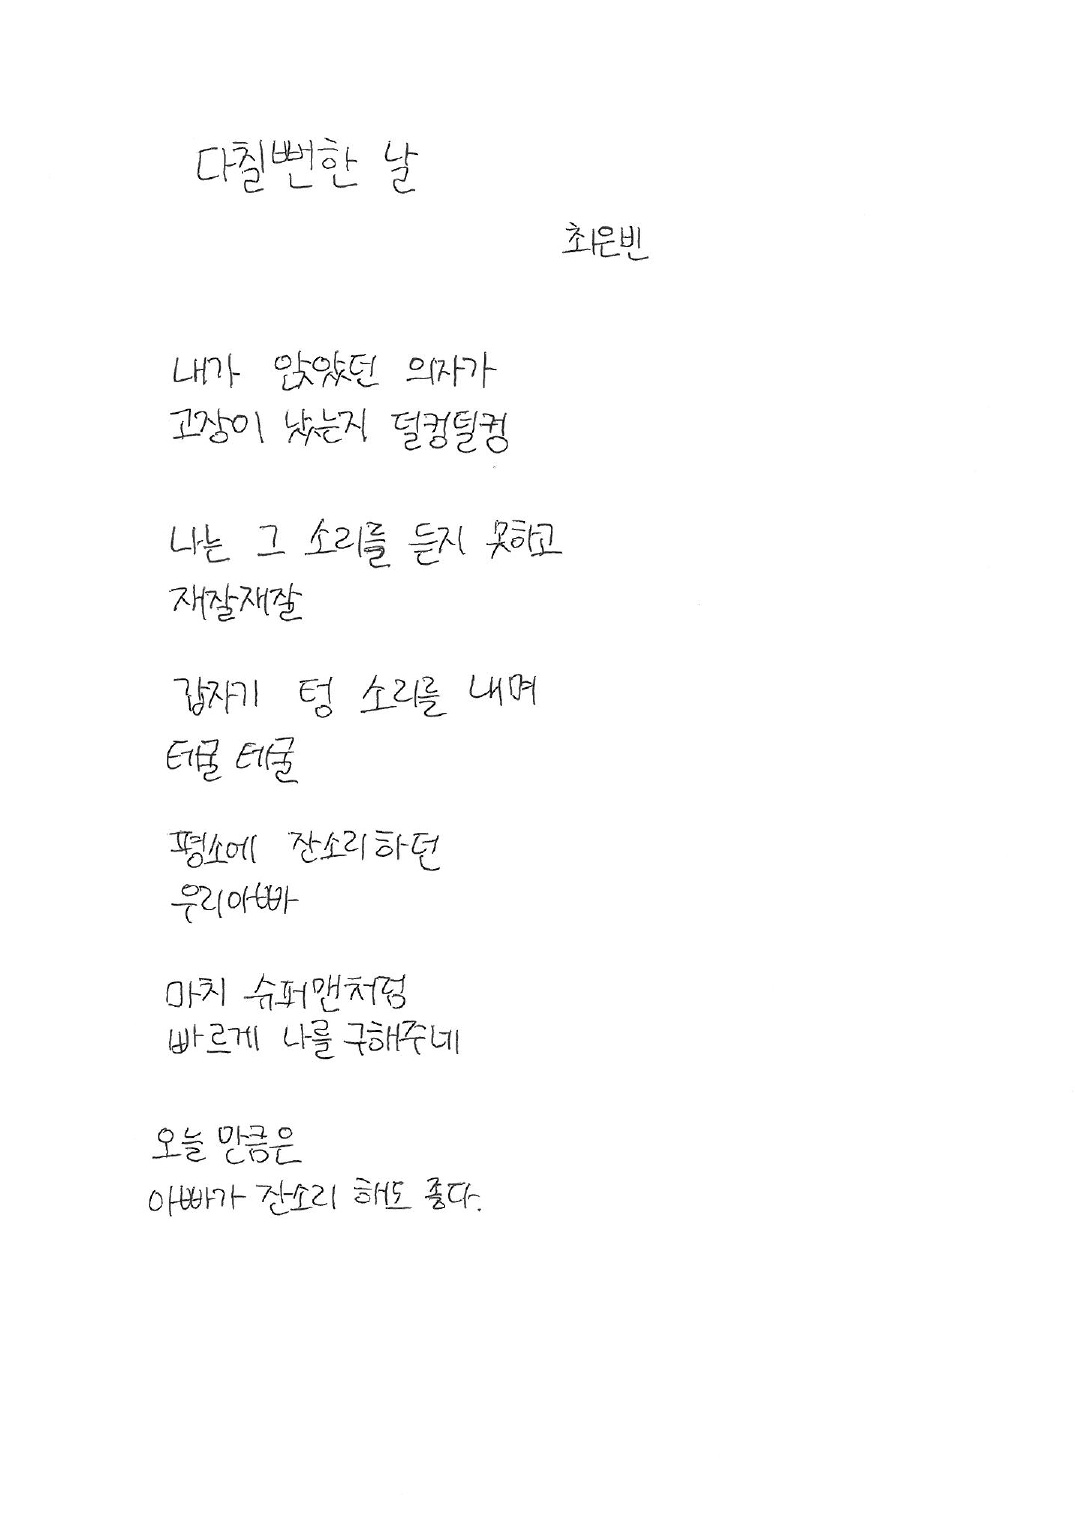 다칠뻔한 날
최은빈
내가 앉았던 의자가
고장이 났는지 덜컹덜컹
나는 그 소리를 듣지 못하고
재잘재잘
갑자기 텅 소리를 내며
테굴 테굴
평소에 잔소리하던
우리아빠
마치 슈퍼맨처럼
빠르게 나를 구해주네
오늘 만큼은
아빠가 잔소리 해도 좋다.